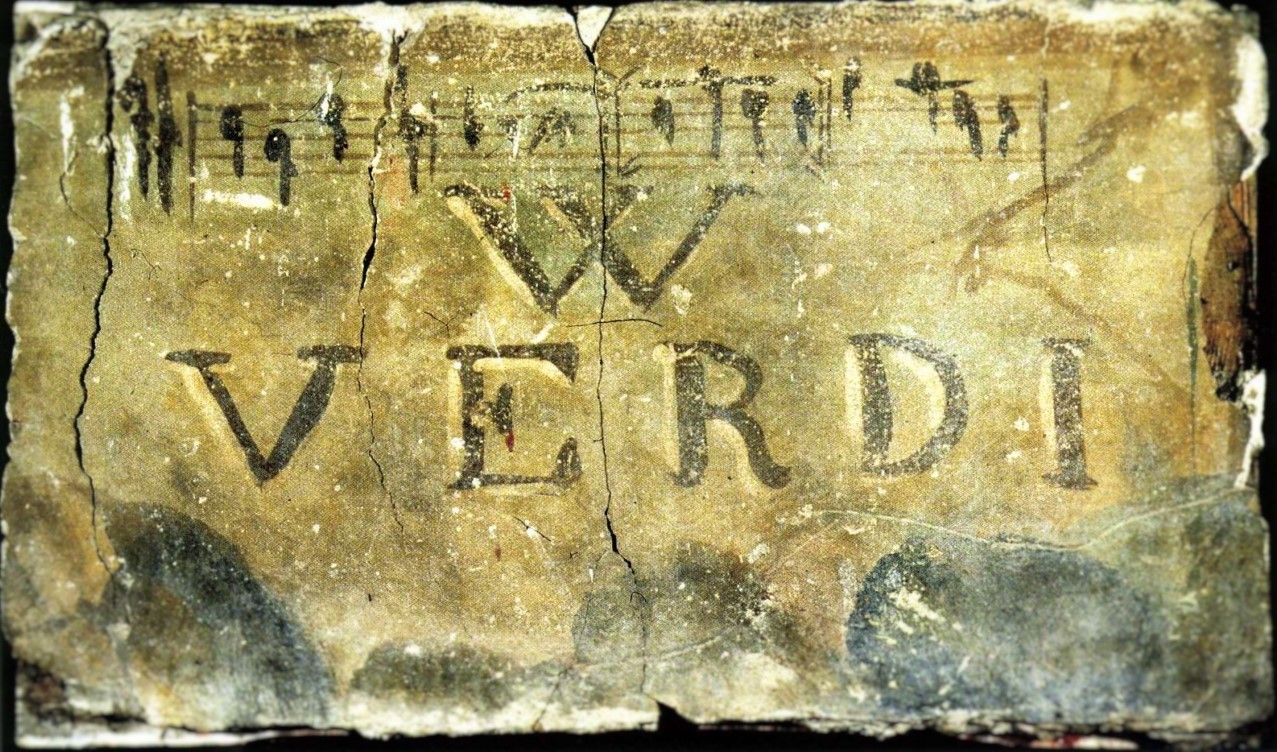 W
VERDI